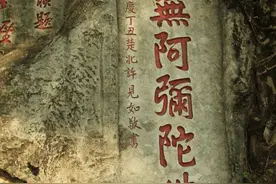 無阿彌陀
慶丁丑楚北許見如敬書
題